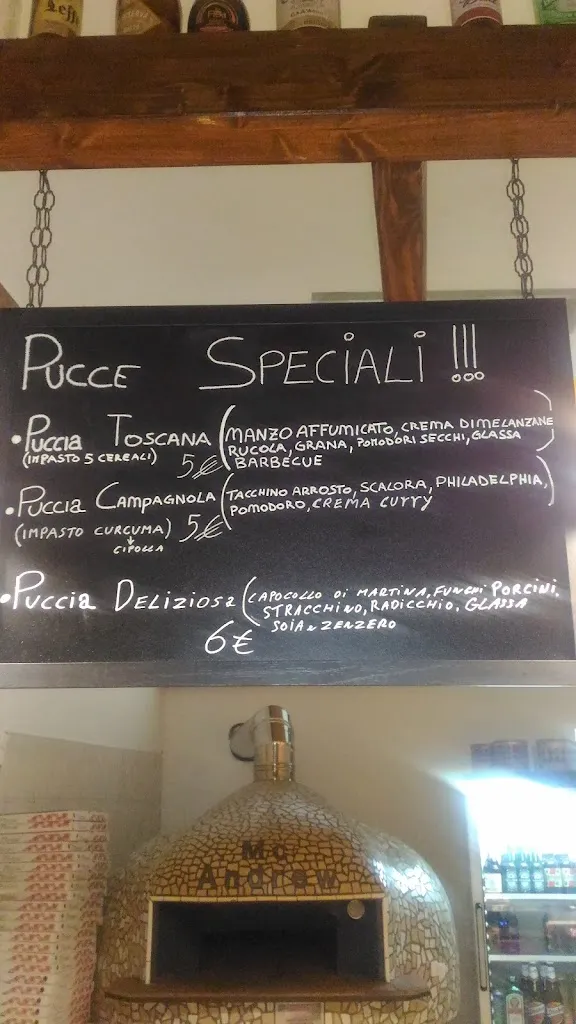 Leffe
PUCCE SPECIALI !!!
• PUCCIA TOSCANA (MANZO AFFUMICATO, CREMA DI MELANZANE
(IMPASTO 5 CEREALI) 5€ RUCOLA, GRANA, POMODORI SECCHI, GLASSA
BARBECUE)
• PUCCIA CAMPAGNOLA (TACCHINO ARROSTO, SCALORA, PHILADELPHIA,
(IMPASTO CURCUMA) 5€ POMODORO, CREMA CURRY)
↓
CIPOLLA
• PUCCIA DELIZIOSA (CAPOCOLLO DI MARTINA, FUNGHI PORCINI,
STRACCHINO, RADICCHIO, GLASSA
6€ SOIA e ZENZERO
Mc
Andrew